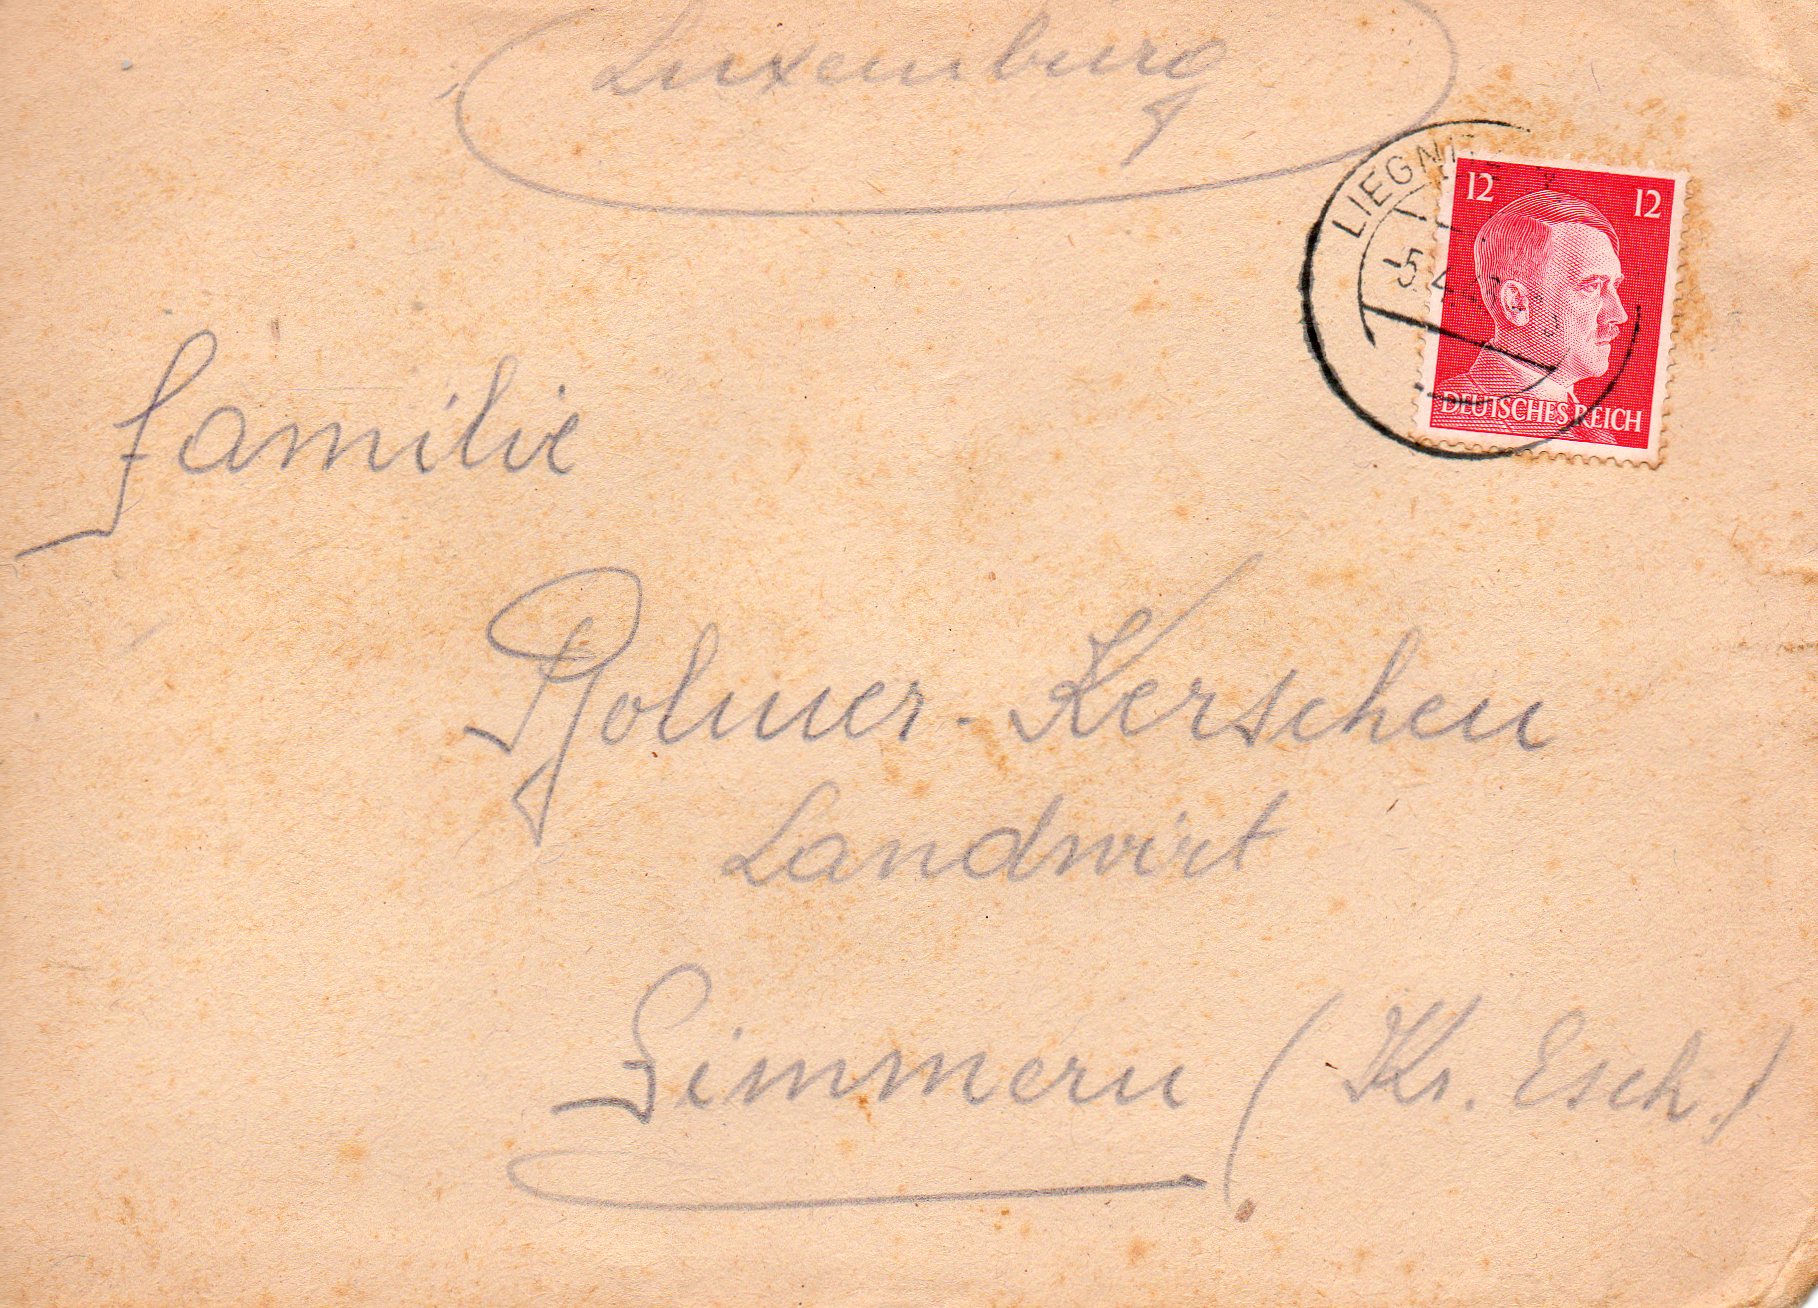 Luxemburg
LIEGNITZ
12 12
-5.4.
DEUTSCHES REICH
Familie
Rolmer-Kerschen
Landwirt
Simmern (Kr. Esch.)